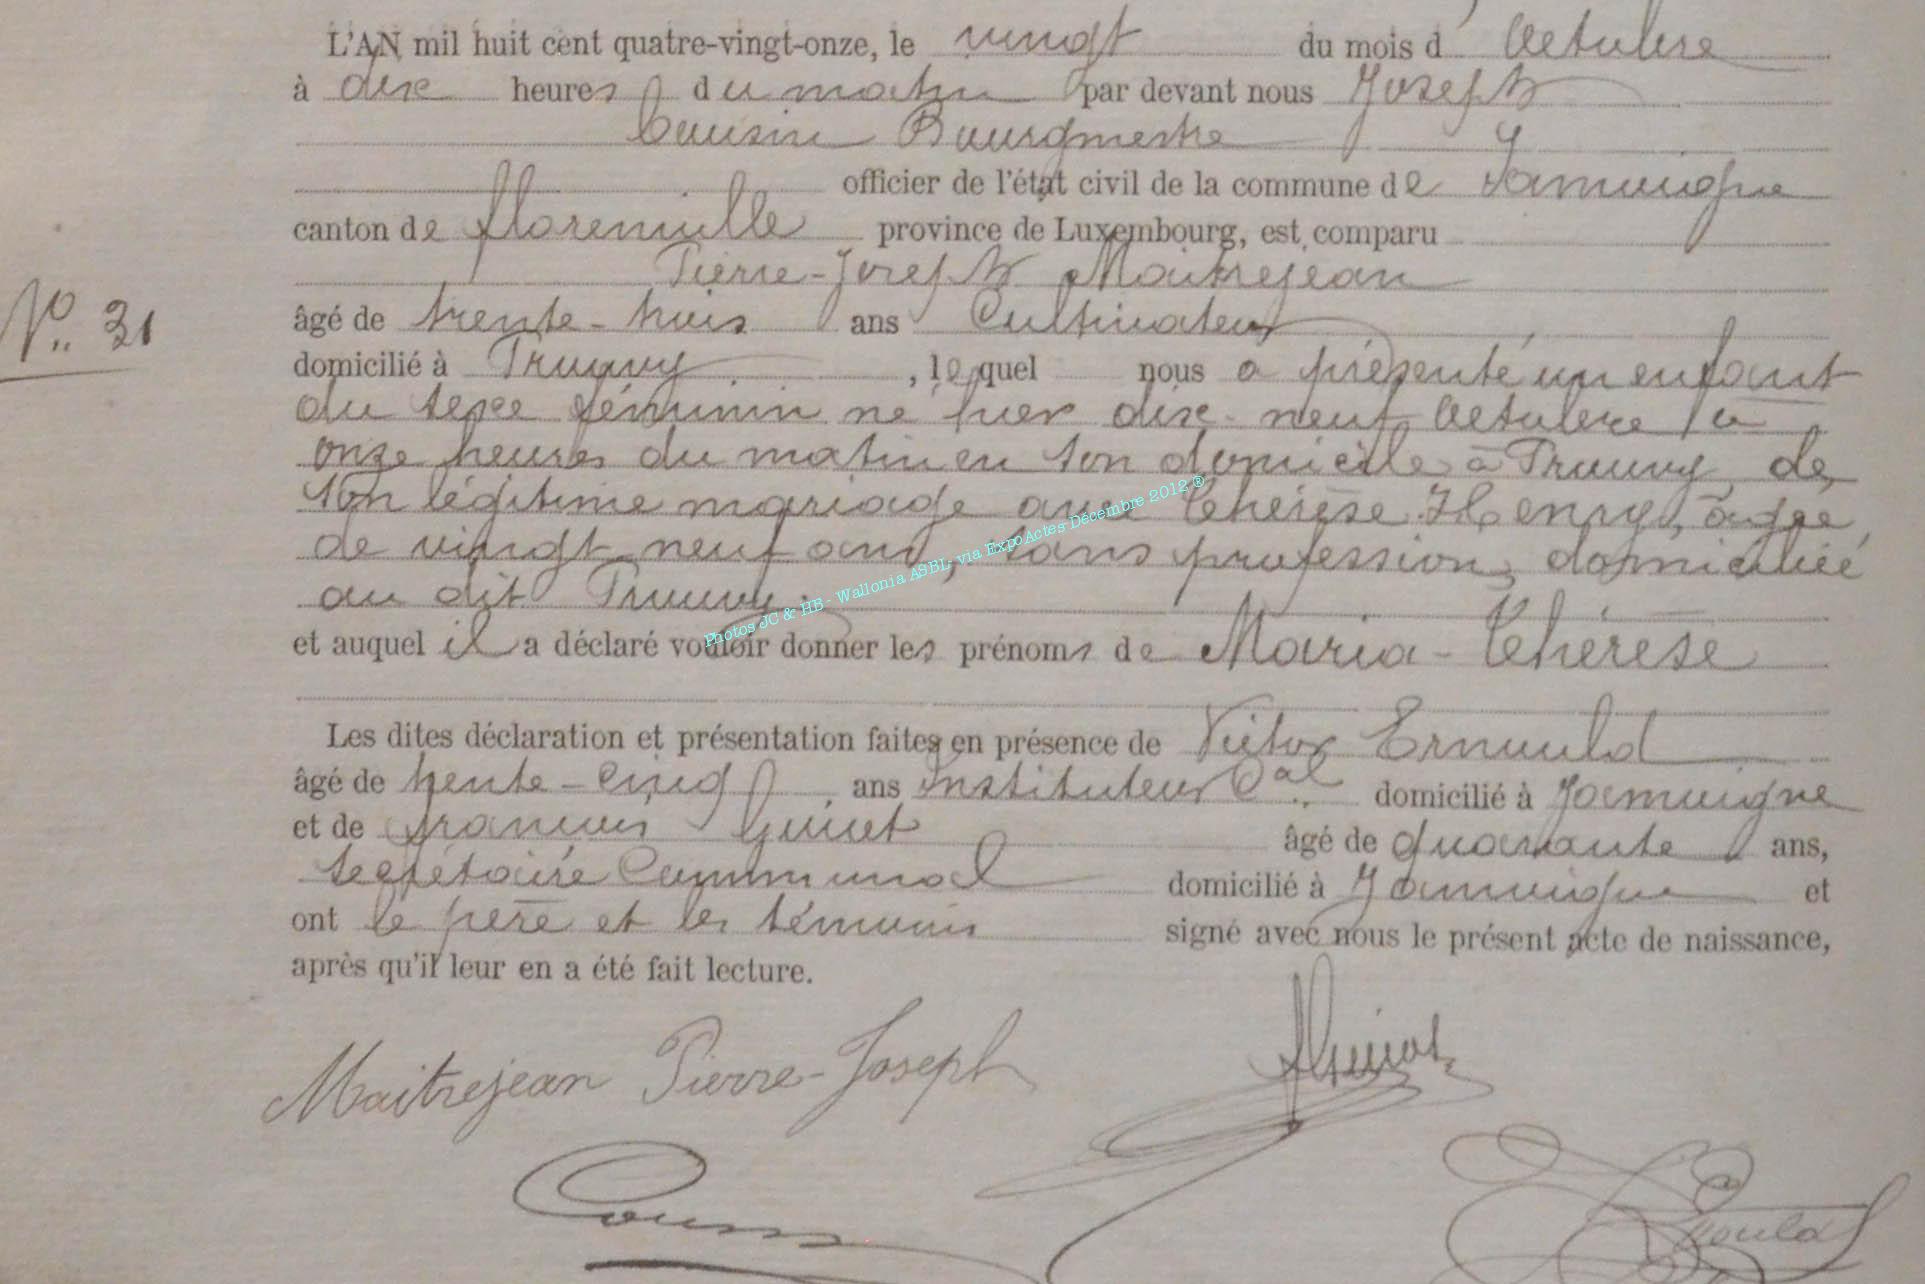 L'AN mil huit cent quatre-vingt-onze, le vingt du mois d'Octobre
à dix heures du matin par devant nous Joseph
Cousin Bourgmestre
officier de l'état civil de la commune de Jamoigne
canton de florenville province de Luxembourg, est comparu
Pierre-Joseph Maitrejean
N° 31
âgé de trente-trois ans Cultivateur
domicilié à Prouvy, lequel nous a présenté un enfant
du sexe féminin né hier dix-neuf Octobre à
onze heures du matin en son domicile à Prouvy, de
son légitime mariage avec Thérèse Henry, âgée
de vingt neuf ans, sans profession, domiciliée
au dit Prouvy.
Photos JC & HB - Wallonia ASBL- via ExpoActes-Décembre 2012 ®
et auquel il a déclaré vouloir donner les prénoms de Maria-Thérèse
Les dites déclaration et présentation faites en présence de Victor Ernould
âgé de trente-cinq ans instituteur Cal domicilié à Jamoigne
et de françois Guiot âgé de quarante ans,
secrétaire Communal domicilié à Jamoigne et
ont le père et les témoins signé avec nous le présent acte de naissance,
après qu'il leur en a été fait lecture.
Maitrejean Pierre-Joseph
Guiot
Cousin
Ernould